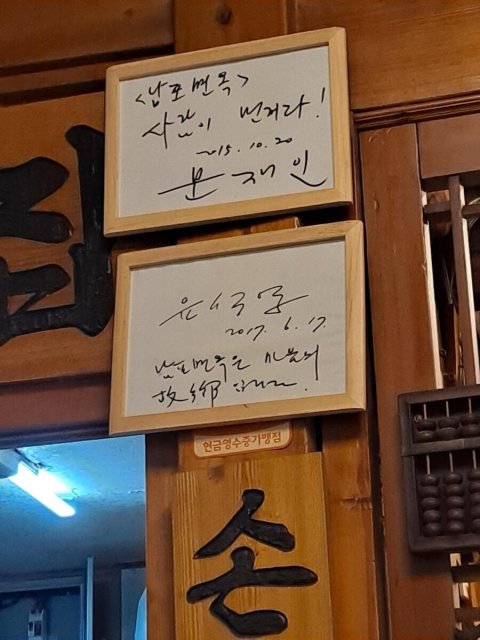 <남포면옥>
사람이 먼저다!
2015. 10. 20
문재인
2017. 6. 17.
남포면옥은 마음의
故鄕입니다.
현금영수증가맹점
손